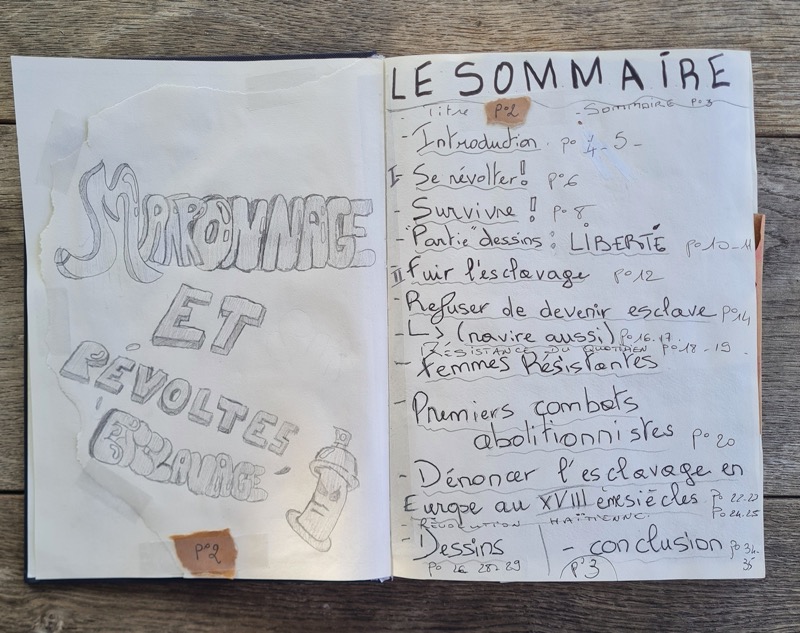 MARRONNAGE
ET
RÉVOLTES
ESCLAVAGE
p°2
LE SOMMAIRE
- Titre p°2 . SOMMAIRE p°3
- Introduction . p° 4-5-
I- Se révolter! p°6
- Survivre ! p°8
- "Partie" dessins : LIBERTÉ p°10-11
II fuir l'esclavage p°12
- Refuser de devenir esclave p°14
↳ (navire aussi) p°16.17.
RÉSISTANCE DU QUOTIDIEN p°18-19
- Femmes Résistantes
- Premiers combats
abolitionnistes p°20
- Dénoncer l'esclavage en
Europe au XVIII èmesiècles. p°22.23
p°24.25
- RÉVOLUTION HAÏTIENNE.
- Dessins
p° 26 28-29
- conclusion p°34.
35
p°3